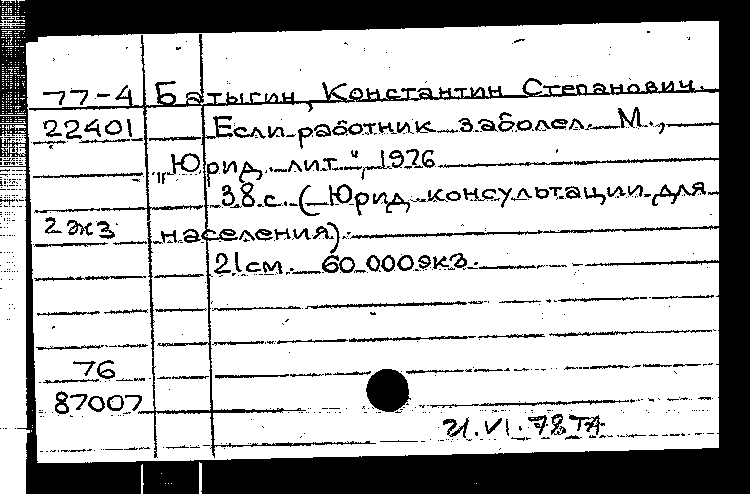 77-4 Батыгин, Константин Степанович.
22401 Если работник заболел. М.,
„Юрид. лит", 1976
38с. (Юрид. консультации для
2 экз населения).
21см. 60 000экз.
76
87007
21.VI.78 ТА